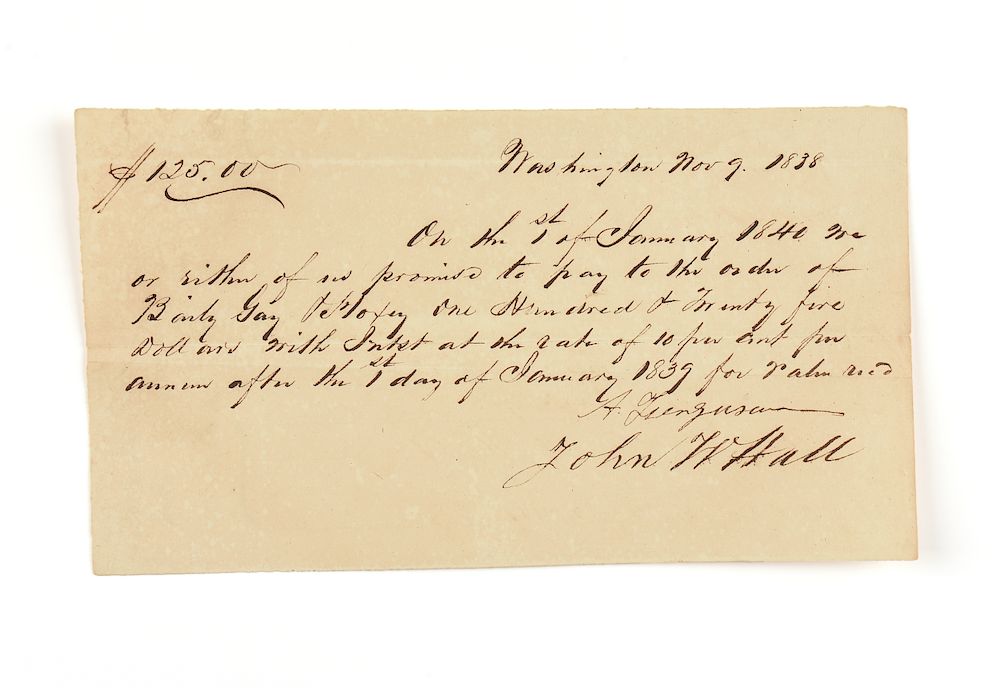 $125.00
Washington Nov 9. 1838
On the 1st of January 1840 we
or either of us promise to pay to the order of
Baily Gay & Hoxey One Hundred & Twenty five
Dollars with Intst at the rate of 10 per cent per
annum after the 1st day of January 1839 for value rec'd
A. Ferguson
John W Hall